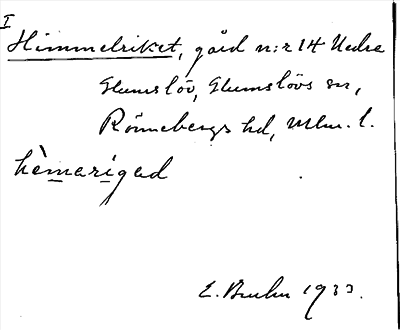 I
Himmelriket, gård n:r 14 Nedre
Glumslöv, Glumslövs sn,
Rönnebergs hd, Mlm. l.
hèmarigad
E. Bruhn 1933.